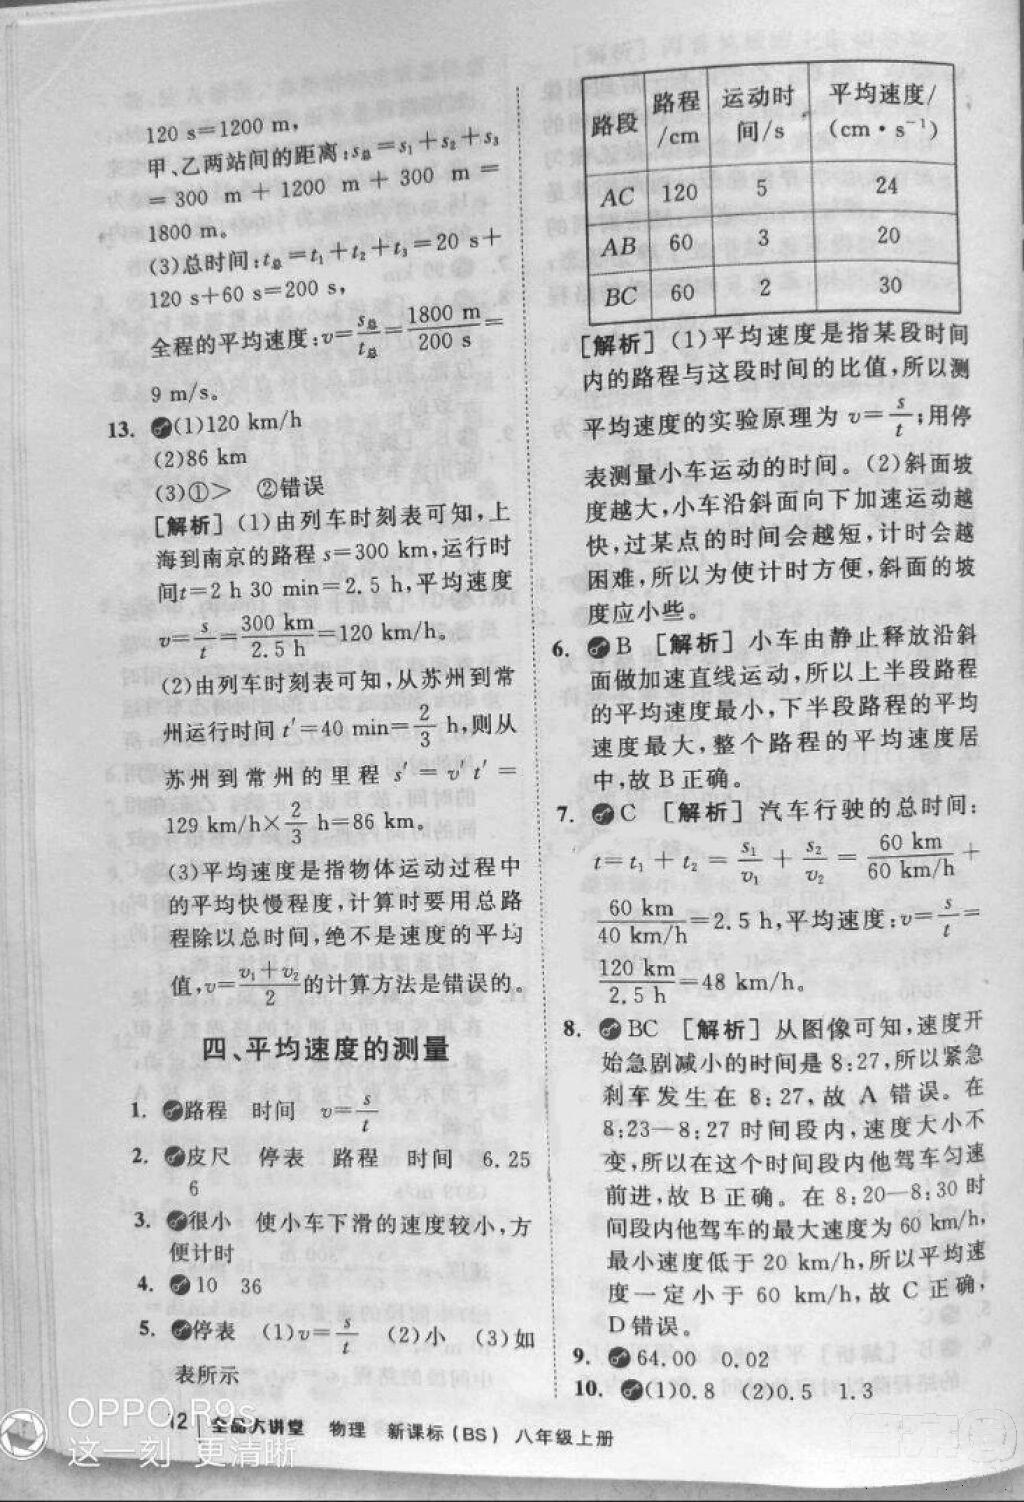 120 s=1200 m,
甲、乙两站间的距离:s总=s₁+s₂+s₃
=300 m+1200 m+300 m=
1800 m。
(3)总时间:t总=t₁+t₂+t₃=20 s+
120 s+60 s=200 s,
全程的平均速度:v=s总/t总=1800 m/200 s=
9 m/s。
13. (1)120 km/h
(2)86 km
(3)①> ②错误
[解析](1)由列车时刻表可知,上
海到南京的路程 s=300 km,运行时
间t=2 h 30 min=2.5 h,平均速度
v=s/t=300 km/2.5 h=120 km/h。
(2)由列车时刻表可知,从苏州到常
州运行时间 t′=40 min=2/3 h,则从
苏州到常州的里程 s′=v′t′=
129 km/h×2/3 h=86 km。
(3)平均速度是指物体运动过程中
的平均快慢程度,计算时要用总路
程除以总时间,绝不是速度的平均
值,v=(v₁+v₂)/2的计算方法是错误的。
四、平均速度的测量
1. 路程 时间 v=s/t
2. 皮尺 停表 路程 时间 6.25
6
3. 很小 使小车下滑的速度较小,方
便计时
4. 10 36
5. 停表 (1)v=s/t (2)小 (3)如
表所示
12 全品大讲堂 物理 新课标(BS) 八年级上册
路段 路程/cm 运动时间/s 平均速度/(cm·s⁻¹)
AC 120 5 24
AB 60 3 20
BC 60 2 30
[解析](1)平均速度是指某段时间
内的路程与这段时间的比值,所以测
平均速度的实验原理为 v=s/t;用停
表测量小车运动的时间。(2)斜面坡
度越大,小车沿斜面向下加速运动越
快,过某点的时间会越短,计时会越
困难,所以为使计时方便,斜面的坡
度应小些。
6. B [解析]小车由静止释放沿斜
面做加速直线运动,所以上半段路程
的平均速度最小,下半段路程的平均
速度最大,整个路程的平均速度居
中,故 B 正确。
7. C [解析]汽车行驶的总时间:
t=t₁+t₂=s₁/v₁+s₂/v₂=60 km/60 km/h+
60 km/40 km/h=2.5 h,平均速度:v=s/t=
120 km/2.5 h=48 km/h。
8. BC [解析]从图像可知,速度开
始急剧减小的时间是 8:27,所以紧急
刹车发生在 8:27,故 A 错误。在
8:23—8:27 时间段内,速度大小不
变,所以在这个时间段内他驾车匀速
前进,故 B 正确。在 8:20—8:30 时
间段内他驾车的最大速度为 60 km/h,
最小速度低于 20 km/h,所以平均速
度一定小于 60 km/h,故 C 正确,
D 错误。
9. 64.00 0.02
10. (1)0.8 (2)0.5 1.3
OPPO R9s
这一刻 更清晰